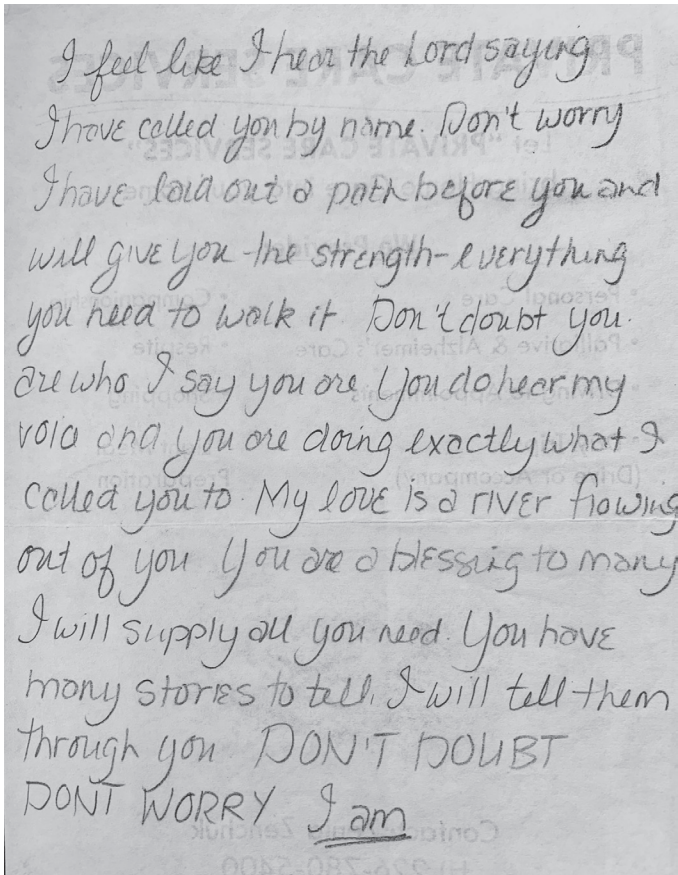 I feel like I hear the Lord saying
I have called you by name. Don't worry
I have laid out a path before you and
will give you the strength - everything
you need to walk it Don't doubt you.
are who I say you are You do hear my
voic and you are doing exactly what I
called you to. My love is a river flowing
out of you You are a blessing to many
I will supply all you need. You have
many stories to tell. I will tell them
through you DON'T DOUBT
DONT WORRY I am